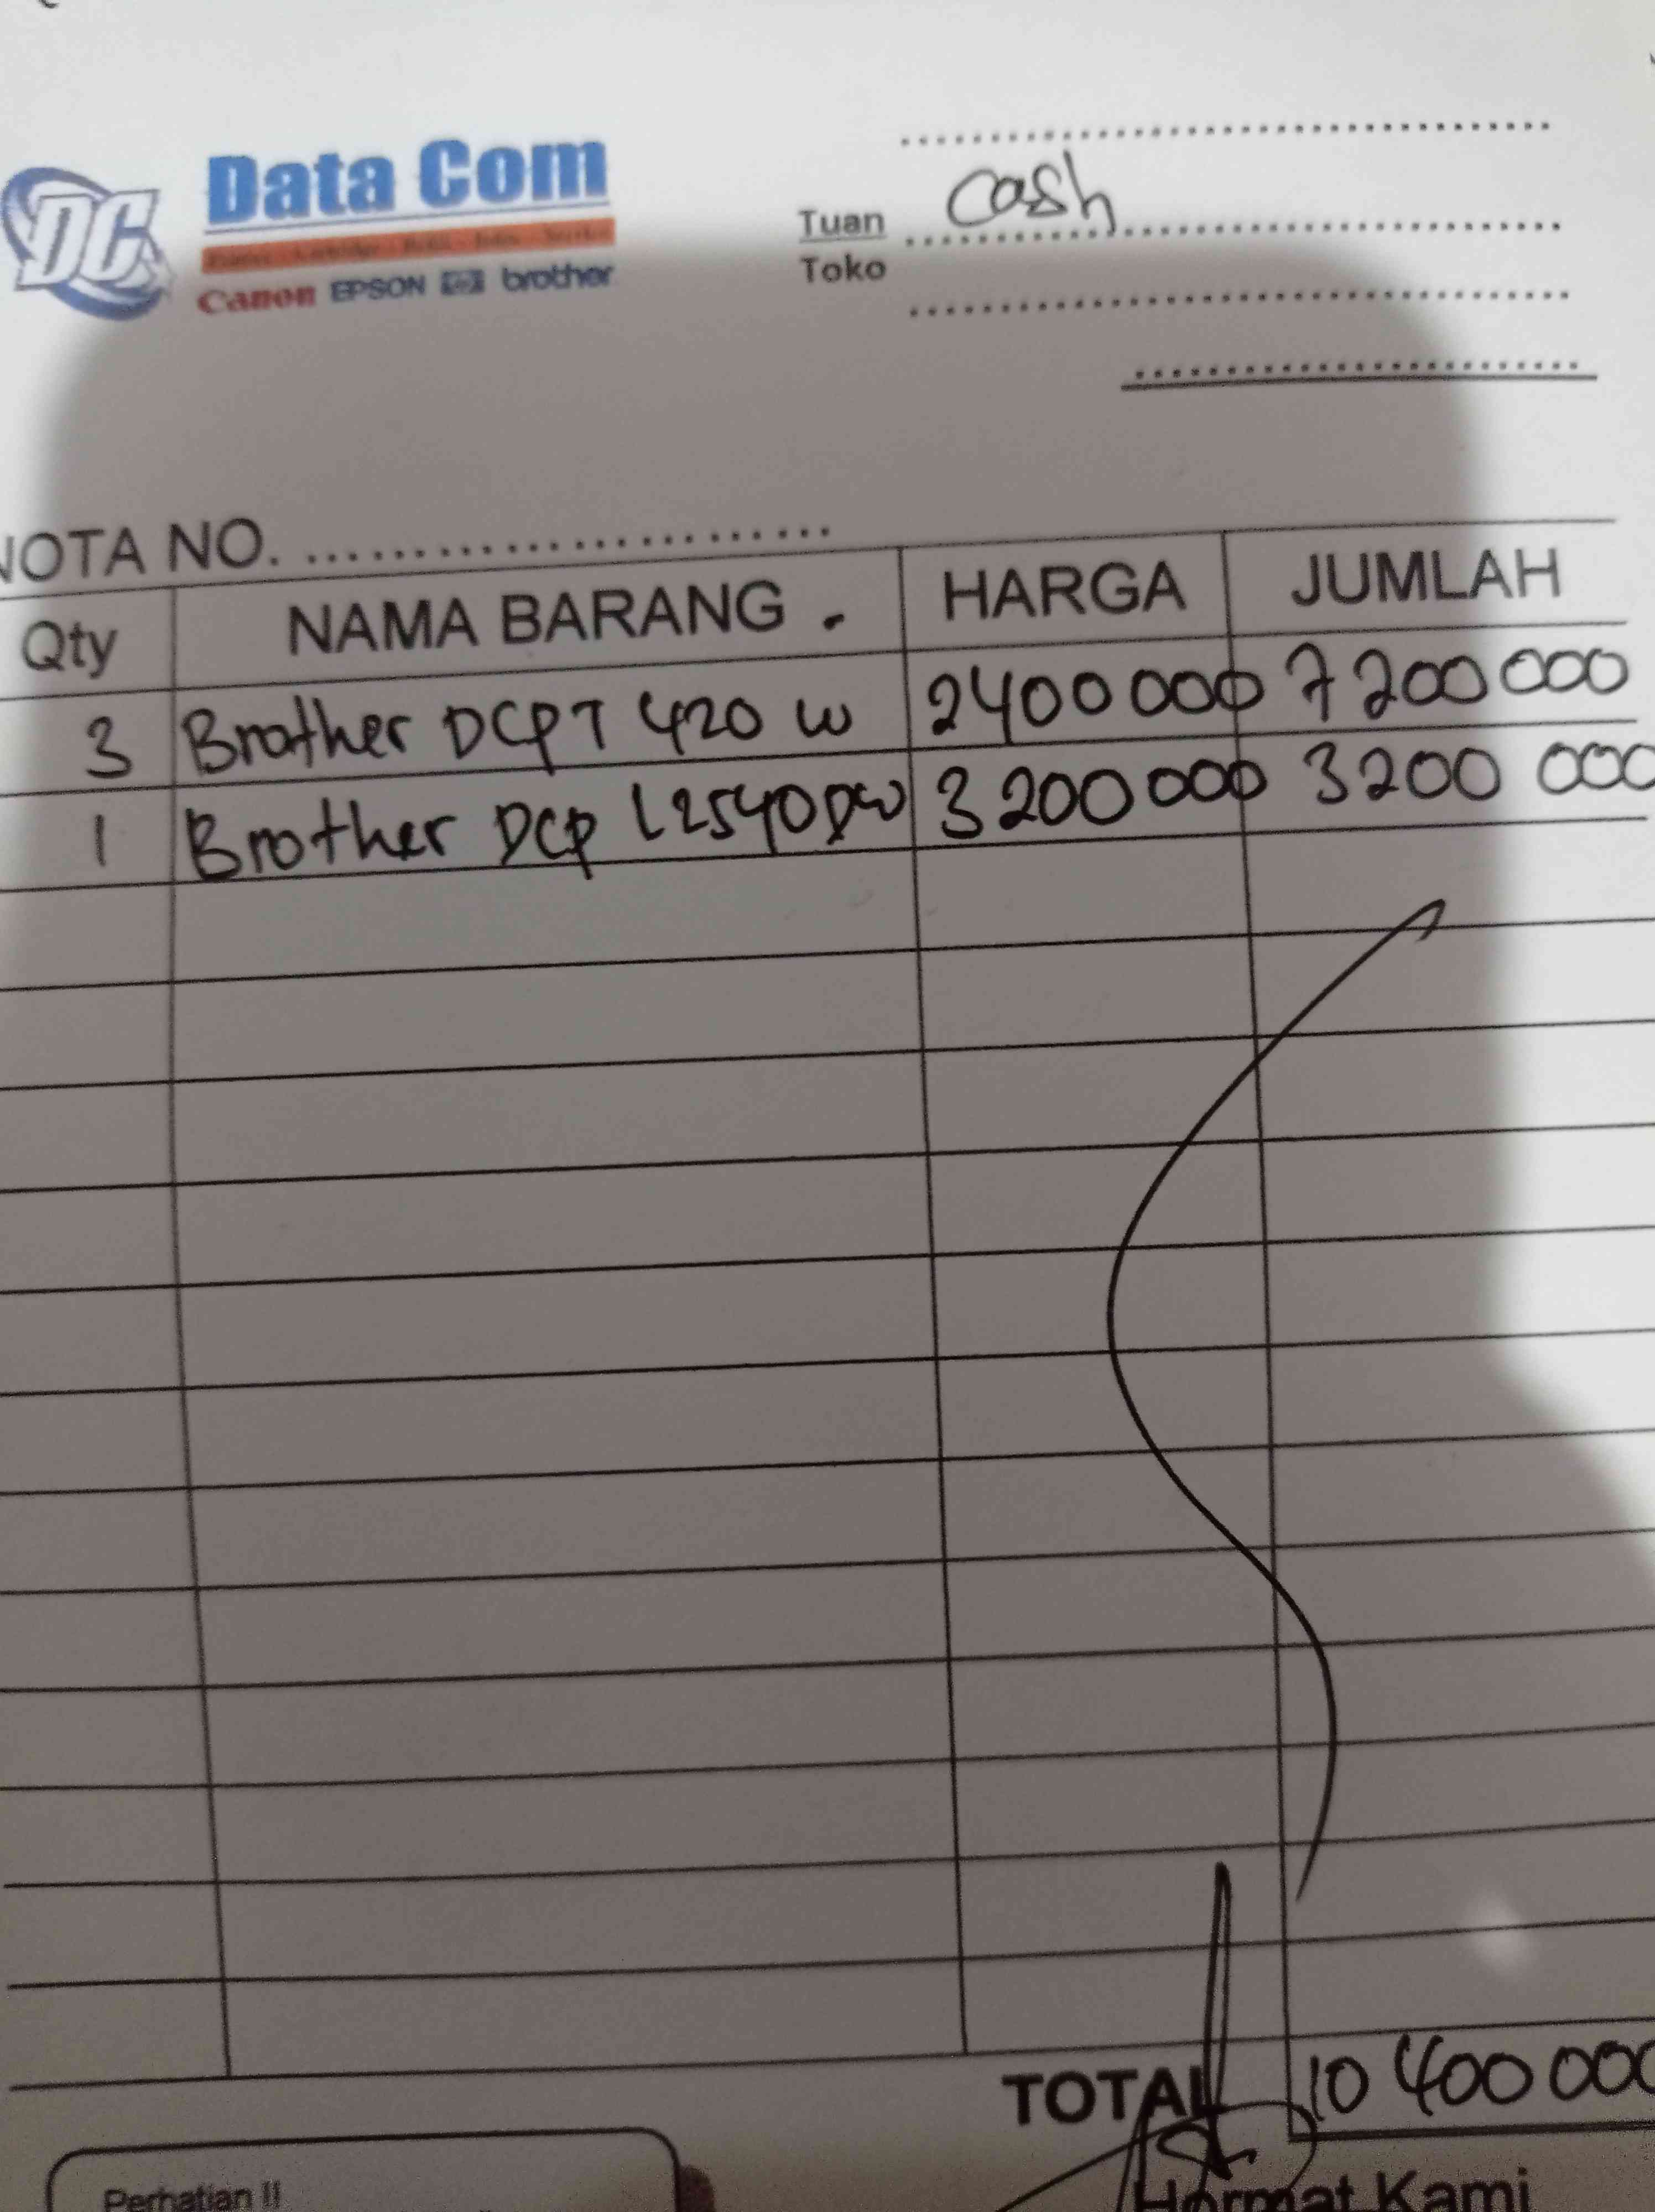 Data Com
Canon EPSON hp brother
Tuan cash
Toko
NOTA NO.
Qty NAMA BARANG HARGA JUMLAH
3 Brother DCP T 420 W 2400 000 7 200 000
1 Brother DCP L2540DW 3 200 000 3200 000
TOTAL 10 400 000
Perhatian !!
Hormat Kami